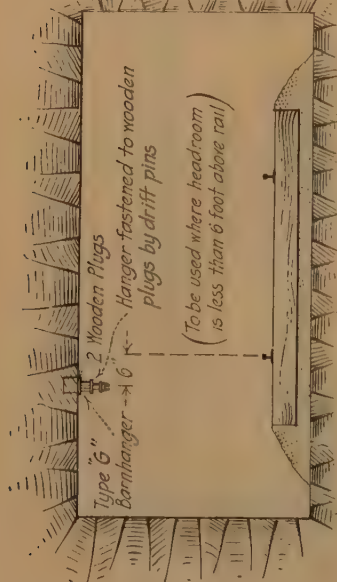 Type "G"
Barnhanger
6"
2 Wooden Plugs
Hanger fastened to wooden
plugs by drift pins
(To be used where headroom
is less than 6 foot above rail)